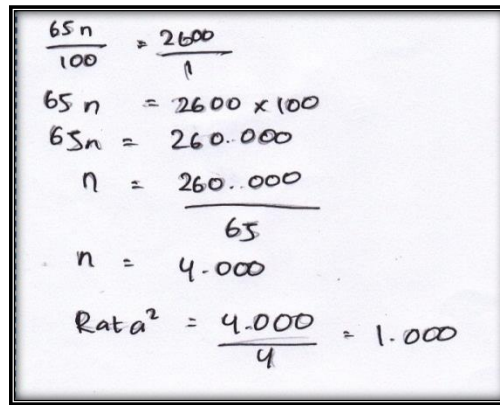 65n/100 = 2600/1
65n = 2600 x 100
65n = 260..000
n = 260..000/65
n = 4.000
Rata² = 4.000/4 = 1.000